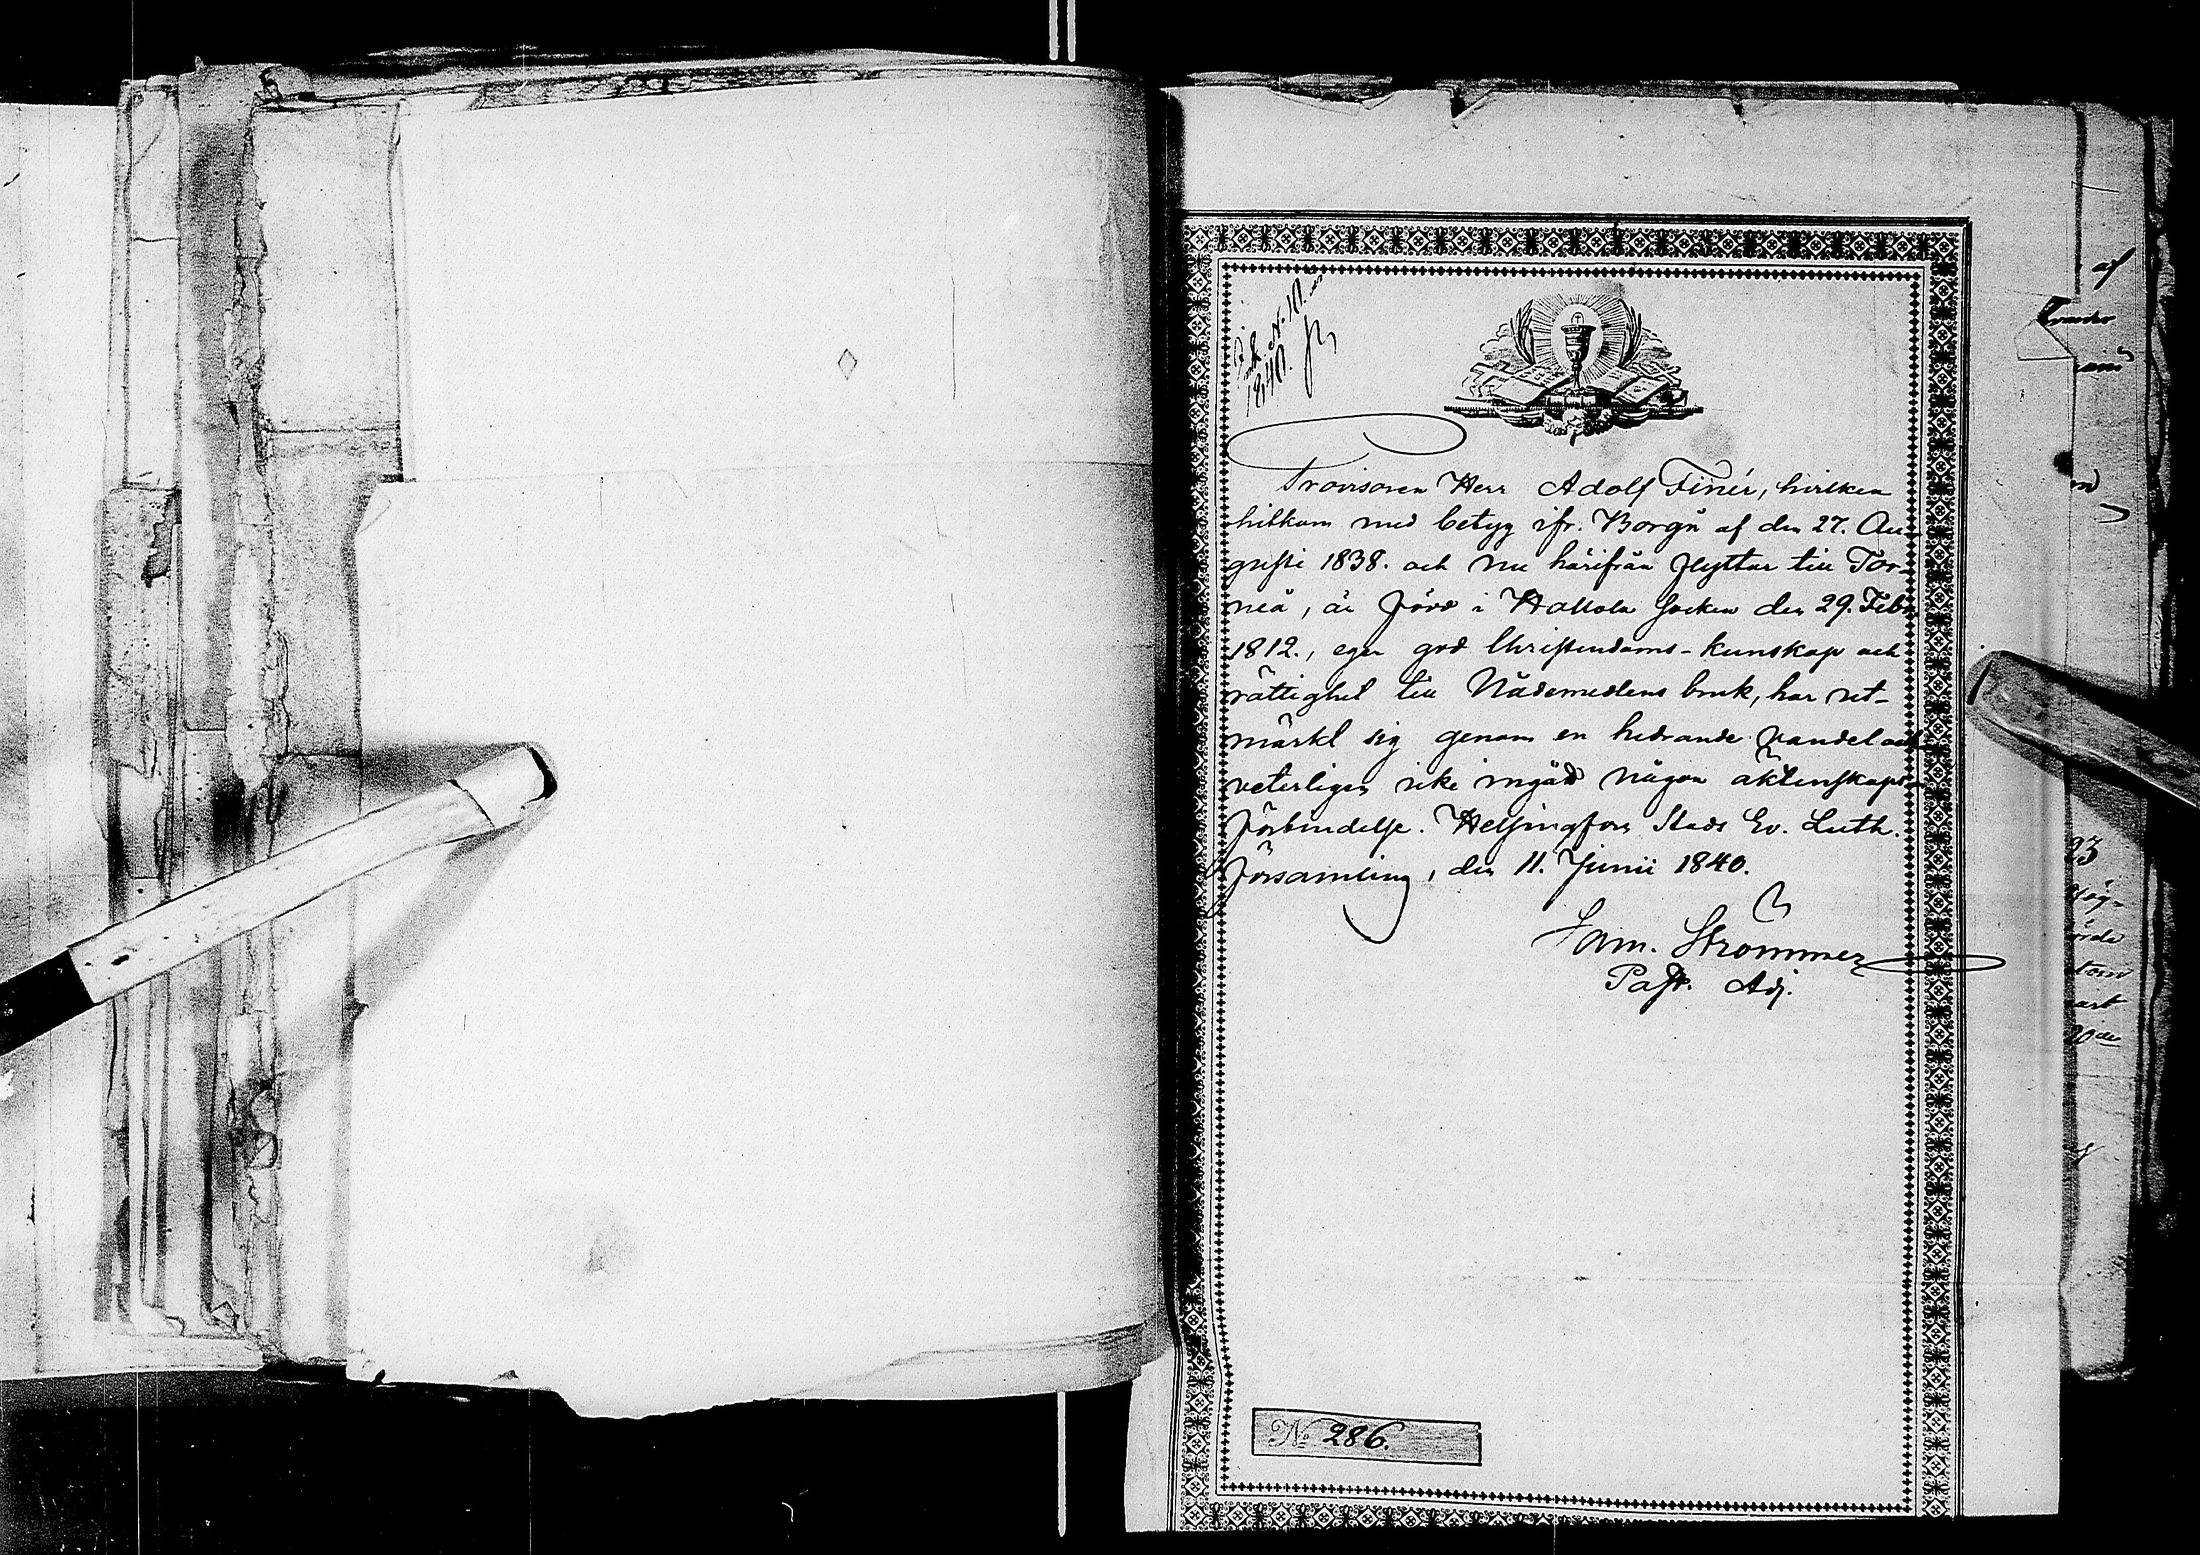 Ink. N. 10.
1840.
Provisoren Herr Adolf Finér, hvilken
hitkom med betyg ifr. Borgå af den 27. Au-
gusti 1838. och nu härifrån flyttar till Tor-
neå, är född i Hollola socken den 29. Febr.
1812., eger god Christendoms-kunskap och
rättighet till Nådemedlens bruk, har ut-
märkt sig genom en hedrande vandel och
veterligen icke ingått någon äktenskaps-
förbindelse. Helsingfors Stads Ev. Luth.
församling, den 11. Junii 1840.
Sam. Strömmer
Past. Adj.
No 286.
af
23